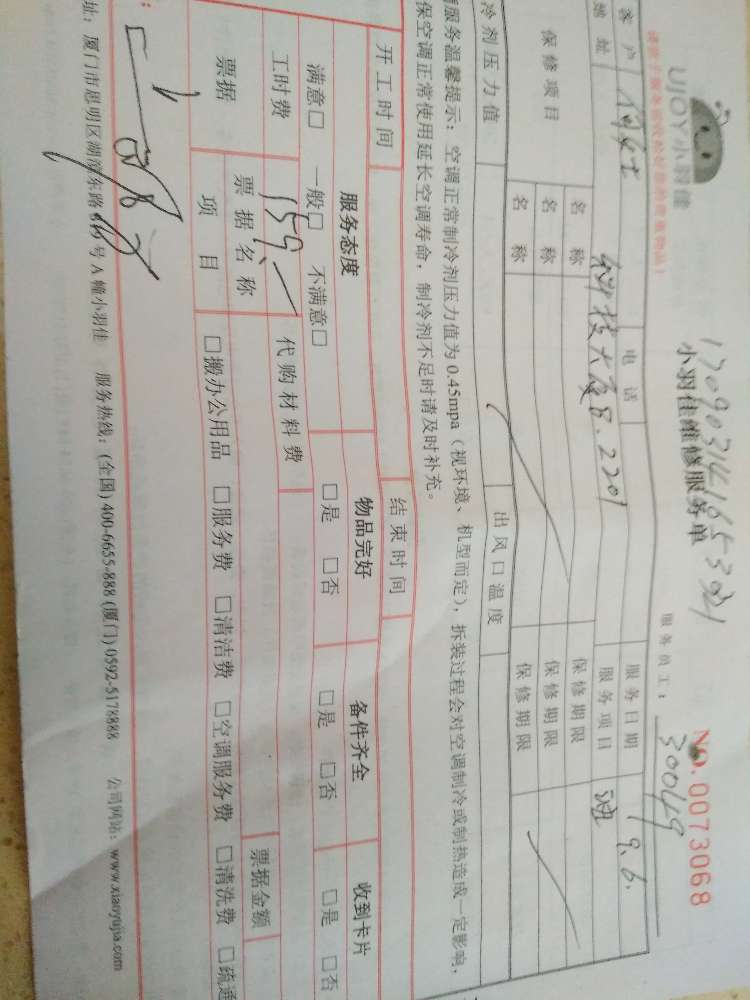 UJOY小羽佳
小羽佳维修服务单
NO.0073068
服务员工：30049
客户
电话
服务日期 9.6.
地址 科技大厦B.2201
服务项目
保修项目
名称
保修期限
名称
保修期限
名称
保修期限
冷剂压力值
出风口温度
服务温馨提示：空调正常制冷剂压力值为0.45mpa（视环境、机型而定），拆装过程会对空调制冷或制热造成一定影响，
保空调正常使用延长空调寿命，制冷剂不足时请及时补充。
开工时间
结束时间
服务态度
物品完好
备件齐全
收到卡片
满意□ 一般□ 不满意□
□是 □否
□是 □否
□是 □否
工时费 159.
代购材料费
票据
票据名称
票据金额
项目
□搬办公用品 □服务费 □清洁费 □空调服务费 □清洗费 □疏通
址：厦门市思明区湖滨东路 号A幢小羽佳 服务热线：(全国) 400-6655-888 (厦门) 0592-5178888 公司网站：www.xiaoyujia.com